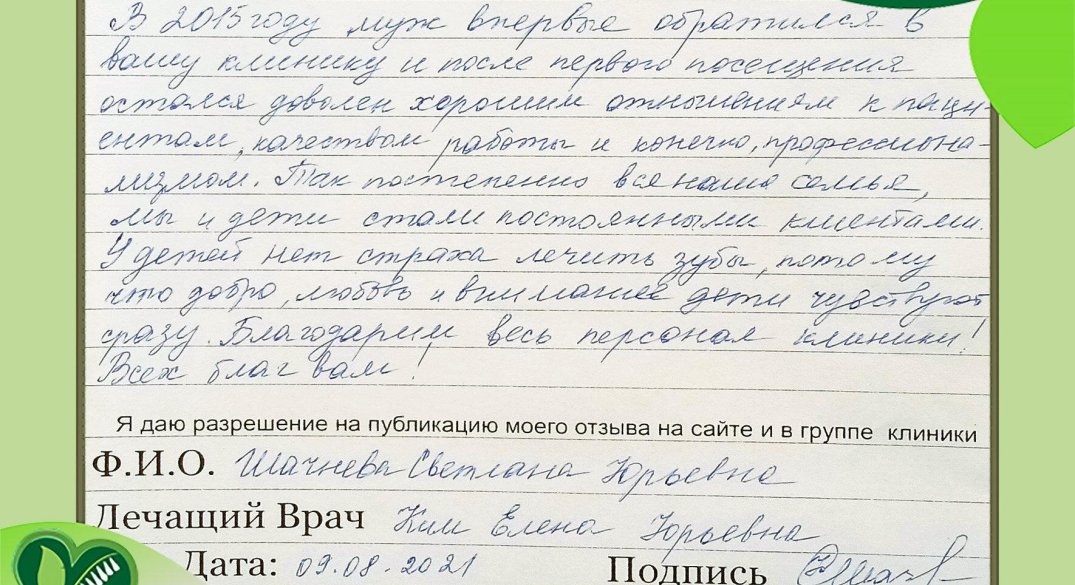 В 2015 году муж впервые обратился в
вашу клинику и после первого посещения
остался доволен хорошим отношением к паци-
ентам, качеством работы и конечно, профессиона-
лизмом. Так постепенно вся наша семья,
мы и дети стали постоянными клиентами.
У детей нет страха лечить зубы, потому
что добро, любовь и внимание дети чувствуют
сразу. Благодарим весь персонал клиники!
Всех благ вам!
Я даю разрешение на публикацию моего отзыва на сайте и в группе клиники
Ф.И.О. Шачнева Светлана Юрьевна
Лечащий Врач Ким Елена Юрьевна
Дата: 09.08.2021 Подпись